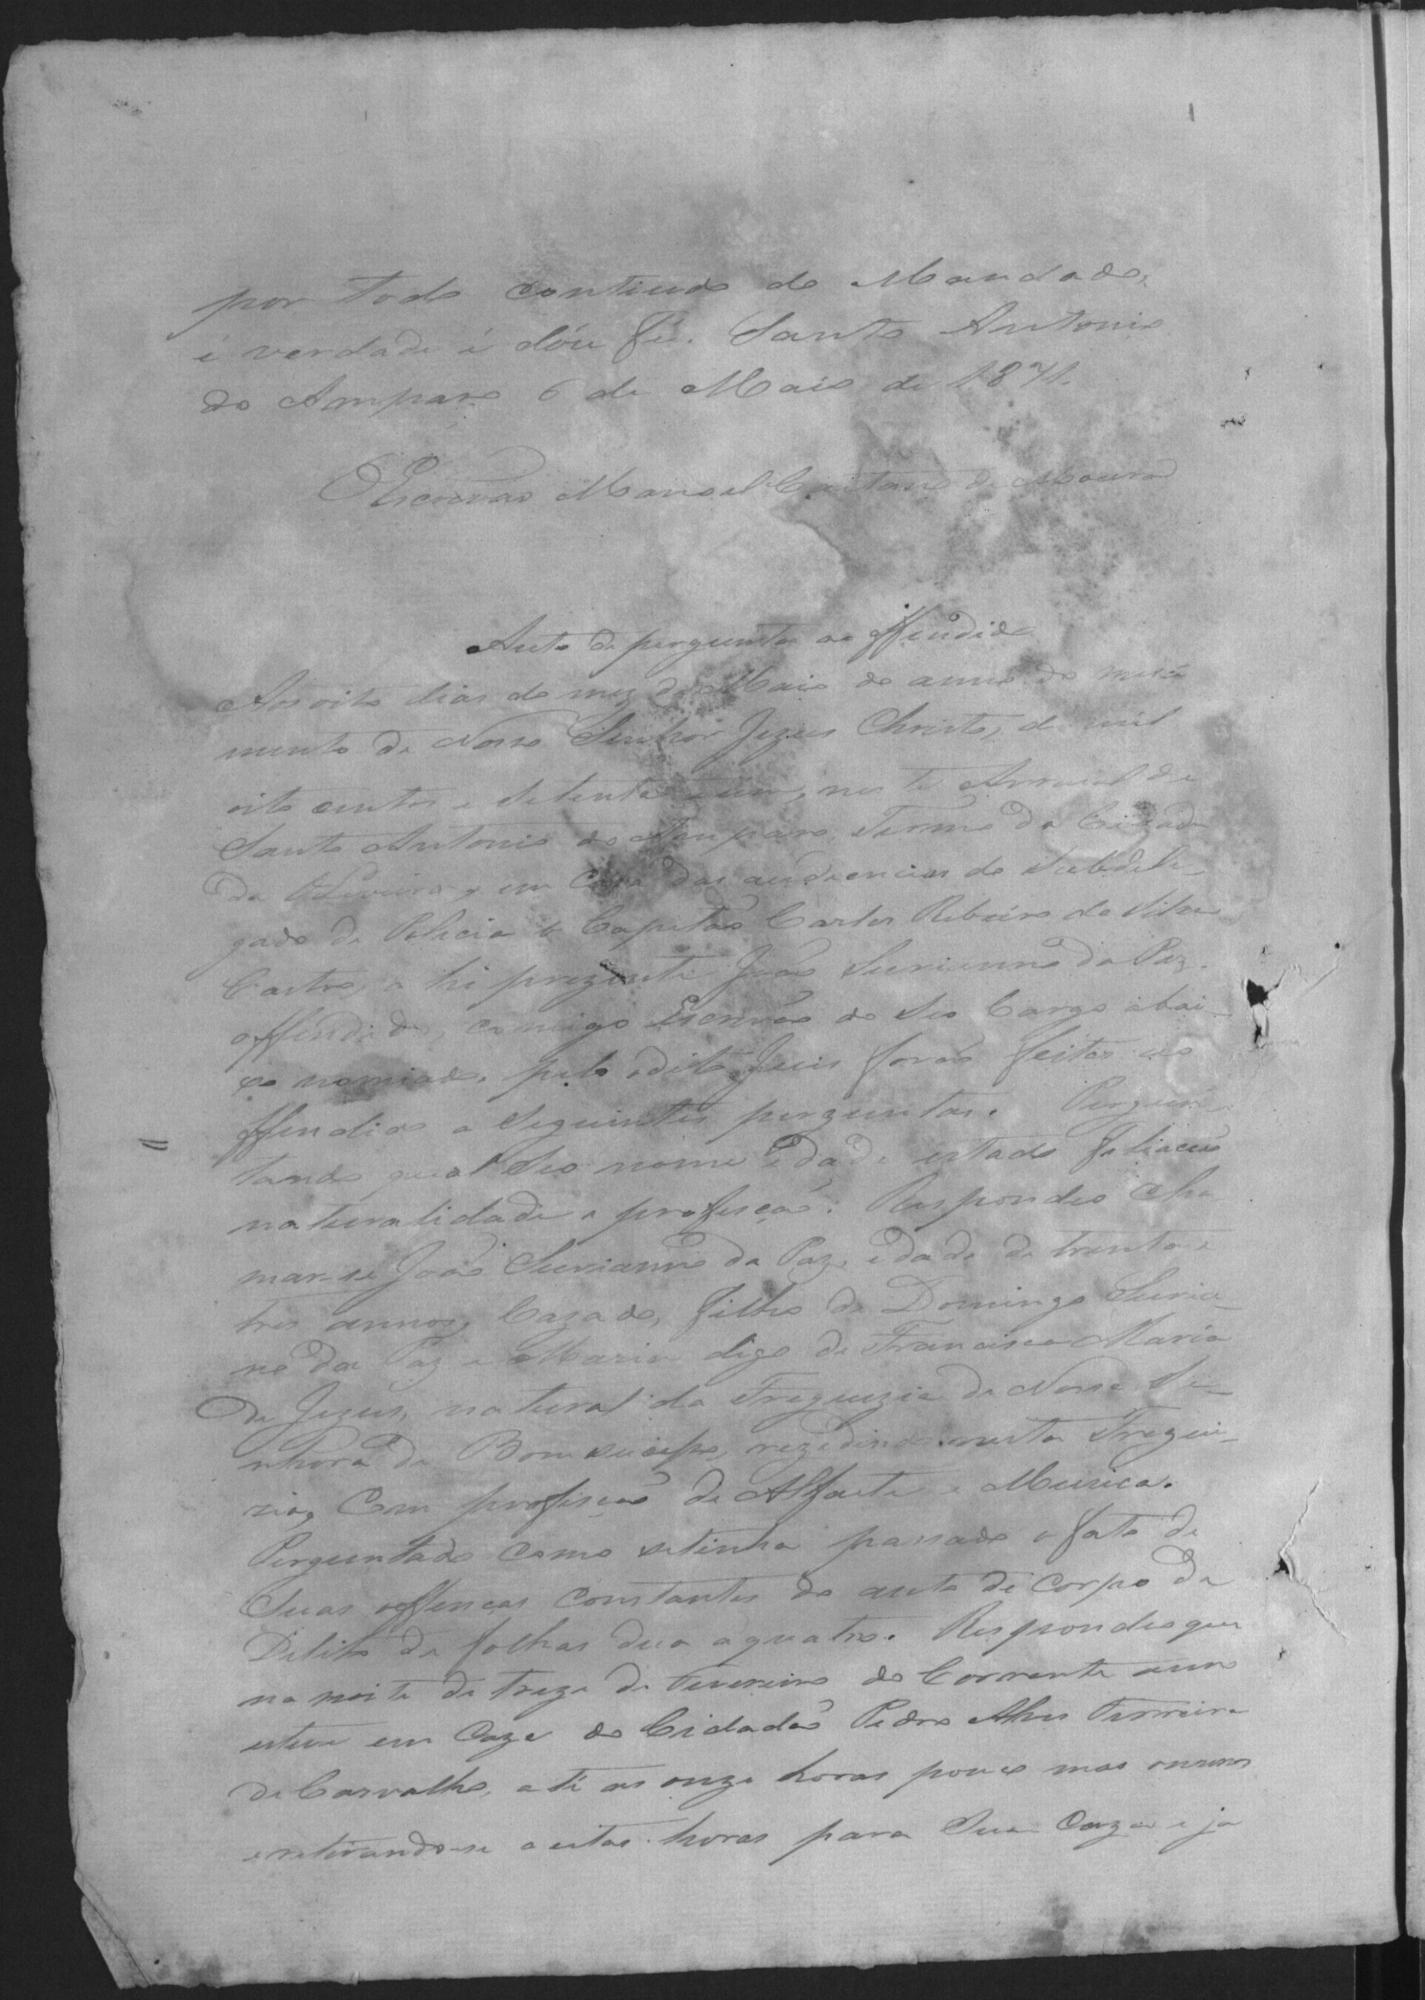 por todo contiudo do Mandado,
é verdade é dou fé. Santo Antonio
do Amparo 6 de Maio de 1871.
O Escrivão Manoel Caitano de Moura
Auto de perguntas ao offendido
Aos oito dias do mez de Maio do anno do nasci
mento de Nosso Senhor Jezus Christo, de mil
oito centos e setenta e um, nes te Arraial de
Santo Antonio do Amparo, Termo da Cidade
de Oliveira, em Caza das audiencias do Subdele_
gado de Policia o Capitão Carlos Ribeiro da Silva
Castro, a hi prezente João Surianno da Paz.
offendido, comigo Escrivão do seo Cargo abai_
xo nomiado, pelo o dito Juis forão feitas ao
offendido a seguintes perguntas. Pergun_
tando qual seo nome idade, estado filiacão
naturalidade e profisção. Respondeo Cha
mar-se João Surianno da Paz, idade de trinta e
tres annos, Cazado, filho de Domingo Suria_
no da Paz e Maria digo de Francisca Maria
de Jezus, natural da Freguezia de Nossa Se_
nhora do Bom sucesso, rezidindo nesta Fregue_
zia, Com profisção de Alfaite e Muzica.
Perguntado como se tinha passado o fato de
Suas offenças constantes do auto de corpo de
Delito de folhas dua a quatro. Respondeo que
na noite de treze de Fevereiro do Corrente anno
esteve em Caza do Cidadão Pedro Alves Ferreira
de Carvalho, até as onze horas pouco mas ou menos
e retirando-se a estas horas para Sua Caza e ja